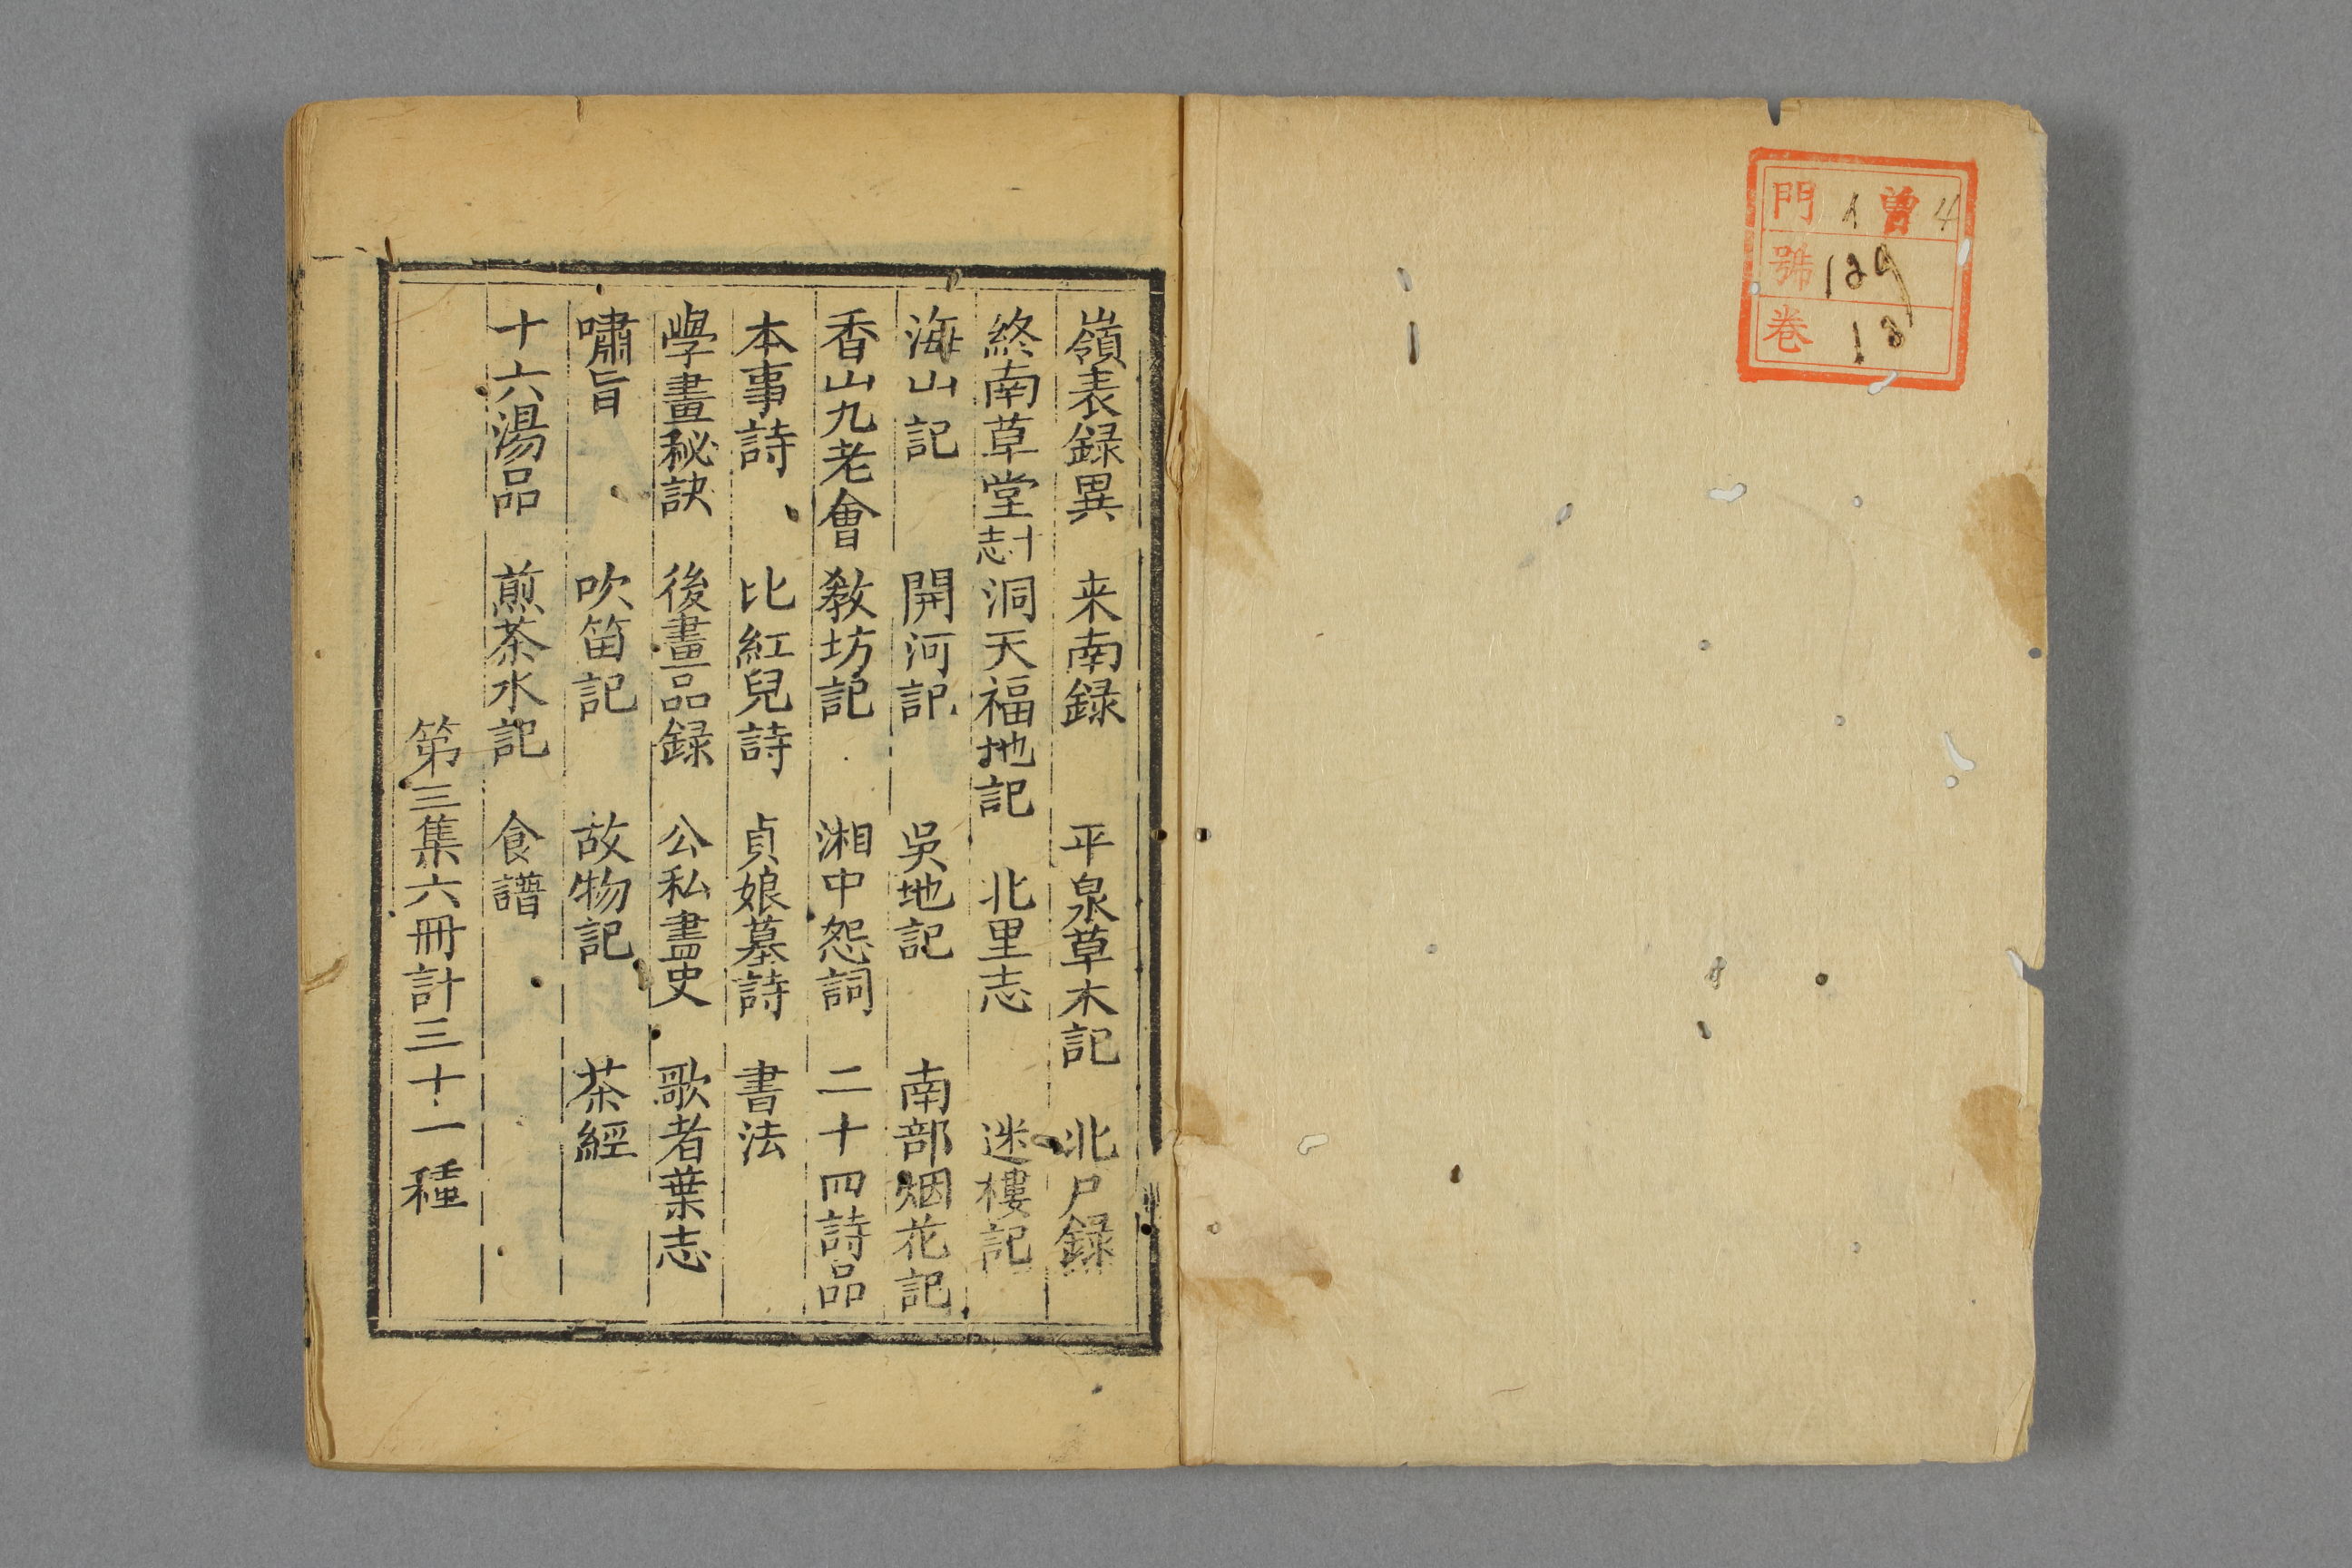 門 曽 4
號 129
巻 18
嶺表録異 来南録 平泉草木記 北戸録
終南草堂十志 洞天福地記 北里志 迷樓記
海山記 開河記 吳地記 南部烟花記
香山九老會 教坊記 湘中怨詞 二十四詩品
本事詩 比紅兒詩 貞娘墓詩 書法
學畫秘訣 後畫品録 公私畫史 歌者葉志
嘯旨 吹笛記 故物記 茶經
十六湯品 煎茶水記 食譜
第三集六冊計三十一種